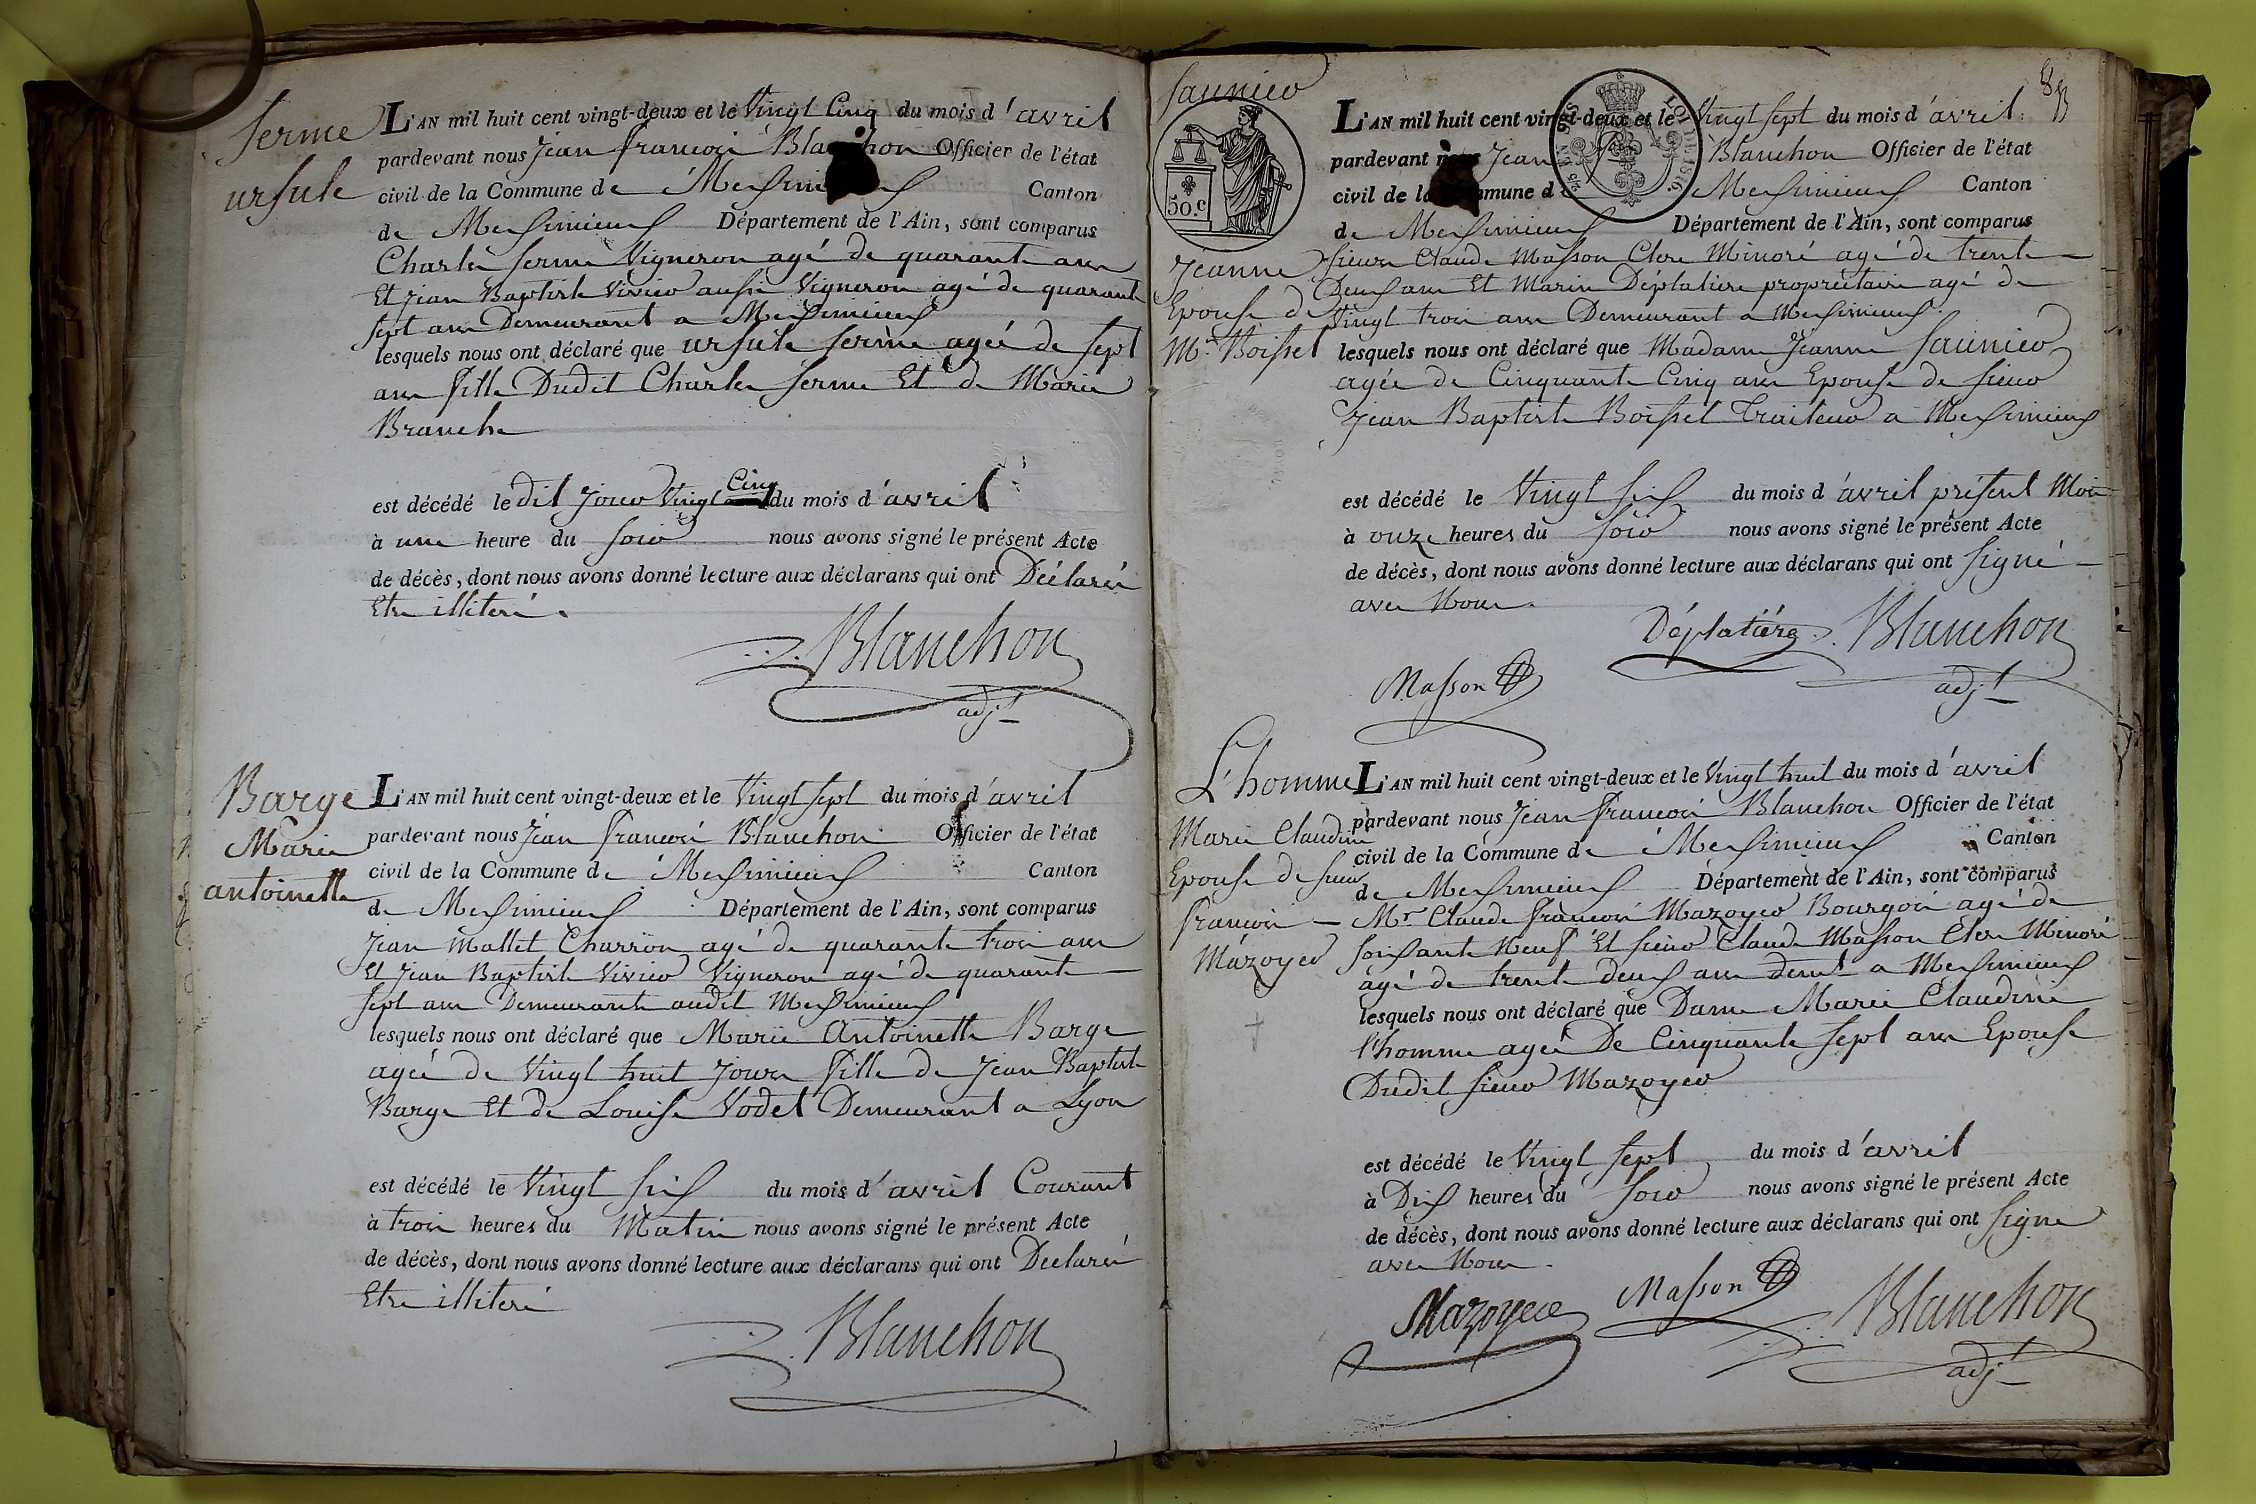 serme
ursule
L'AN mil huit cent vingt-deux et le Vingt Cinq du mois d'avril
pardevant nous Jean francois Blanchon Officier de l'état
civil de la Commune de Meximieux Canton
de Meximieux Département de l'Ain, sont comparus
Charles serme Vigneron agé de quarante ans
Et Jean Baptiste Vivier aussi Vigneron agé de quarante
sept ans Demeurant a Meximieux
lesquels nous ont déclaré que ursule serme agée de sept
ans fille Dudit Charles serme Et de Marie
Branche
est décédé le dit Jour Vingt Cinq du mois d'avril
à une heure du soir nous avons signé le présent Acte
de décès, dont nous avons donné lecture aux déclarans qui ont Déclarés
Etre illiteré.
Blanchon
adjt
Barge
Marie
antoinette
L'AN mil huit cent vingt-deux et le Vingt sept du mois d'avril
pardevant nous Jean francois Blanchon Officier de l'état
civil de la Commune de Meximieux Canton
de Meximieux Département de l'Ain, sont comparus
Jean Mallet Charron agé de quarante trois ans
Et Jean Baptiste Vivier Vigneron agé de quarante
sept ans Demeurants audit Meximieux
lesquels nous ont déclaré que Marie Antoinette Barge
agée de Vingt huit Jours fille de Jean Baptiste
Barge Et de Louise Vodet Demeurant a Lyon
est décédé le Vingt six du mois d'avril Courant
à trois heures du Matin nous avons signé le présent Acte
de décès, dont nous avons donné lecture aux déclarans qui ont Declarés
Etre illiteré
Blanchon
saunier
50.c
Jeanne
Epouse de
Mr. Boissel
L'AN mil huit cent vingt-deux et le Vingt sept du mois d'avril
pardevant nous Jean Blanchon Officier de l'état
civil de la Commune d Meximieux Canton
de Meximieux Département de l'Ain, sont comparus
sieurs Claude Masson Clerc Minoré agé de trente
Deux ans Et Marin Déplatière propriétaire agé de
Vingt trois ans Demeurant a Meximieux
lesquels nous ont déclaré que Madame Jeanne saunier
agée de Cinquante Cinq ans Epouse de sieur
Jean Baptiste Boissel traiteur a Meximieux
est décédé le Vingt six du mois d'avril présent Mois
à onze heures du soir nous avons signé le présent Acte
de décès, dont nous avons donné lecture aux déclarans qui ont signé
avec Nous.
Déplatière Blanchon
Masson adjt
L'homme
Marie Claudine
Epouse de sieur
francois
Mazoyer
L'AN mil huit cent vingt-deux et le Vingt huit du mois d'avril
pardevant nous Jean francois Blanchon Officier de l'état
civil de la Commune de Meximieux Canton
de Meximieux Département de l'Ain, sont comparus
Mr. Claude francois Mazoyer Bourgois agé de
soixante Neuf Et sieur Claude Masson Clerc Minoré
agé de trente deux ans demt a Meximieux
lesquels nous ont déclaré que Dame Marie Claudine
l'homme agée De Cinquante sept ans Epouse
Dudit sieur Mazoyer
est décédé le Vingt sept du mois d'avril
à Dix heures du soir nous avons signé le présent Acte
de décès, dont nous avons donné lecture aux déclarans qui ont signe
avec Nous.
Mazoyer Masson Blanchon
adjt